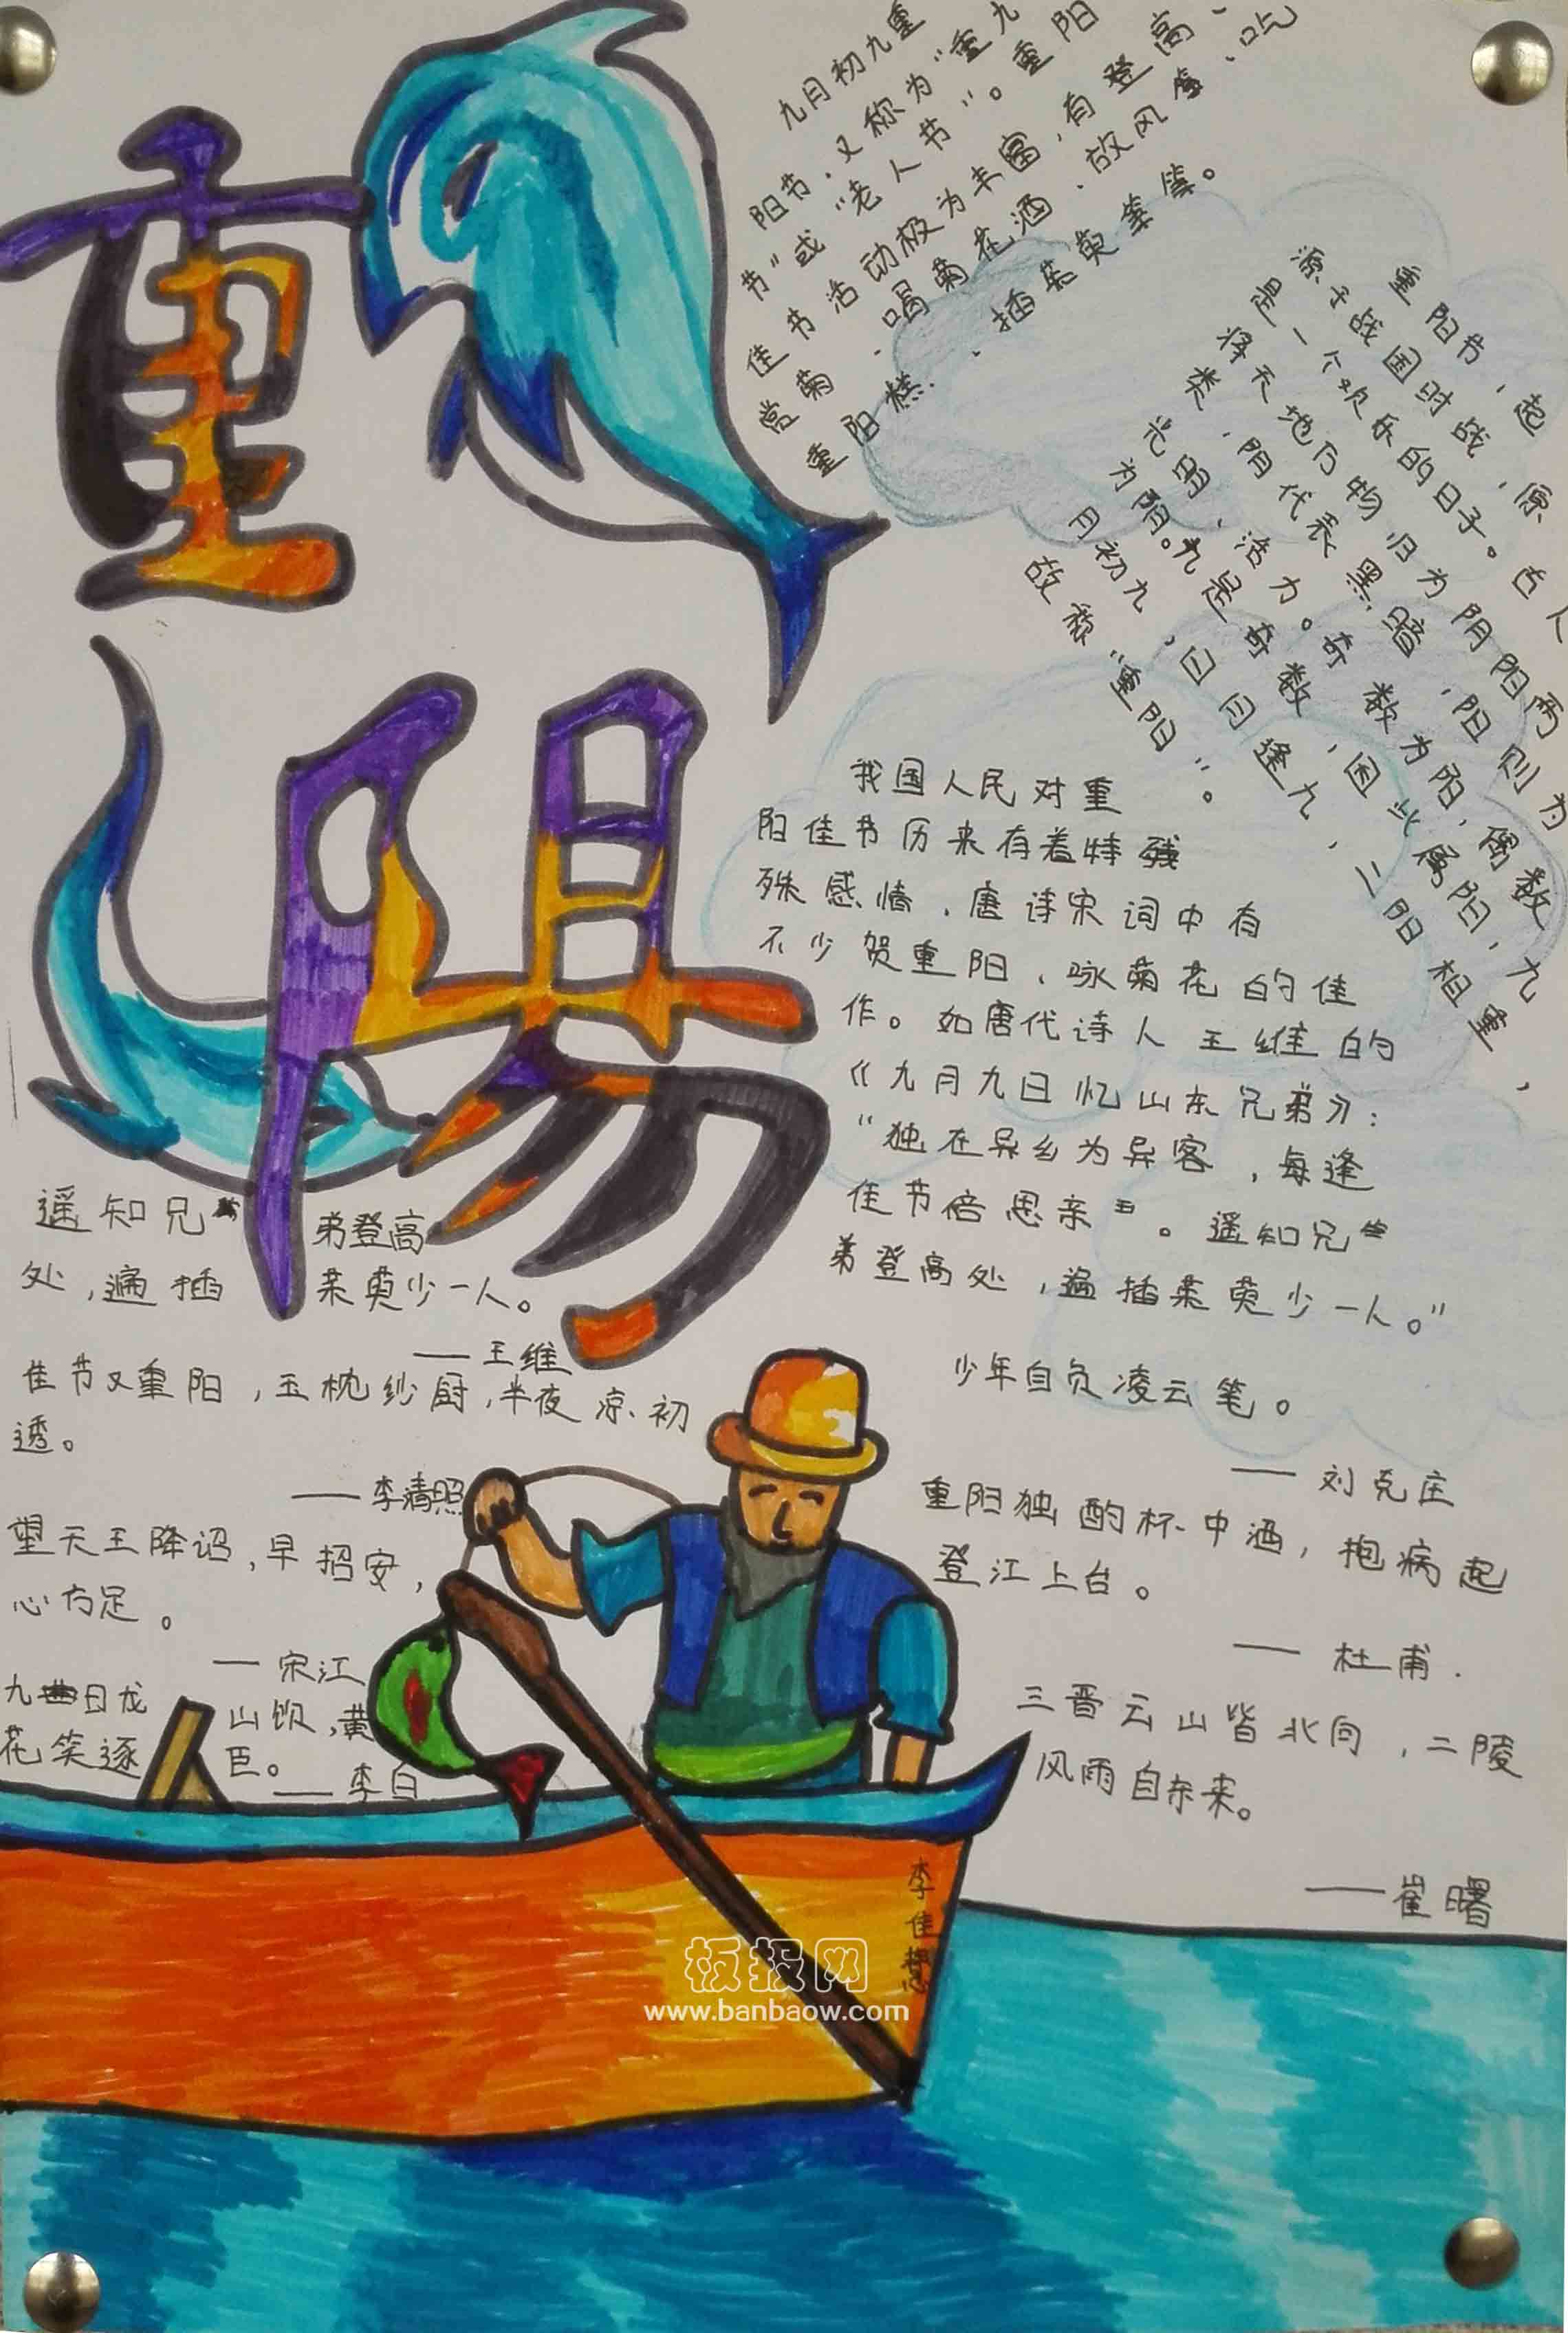 重
陽
九月初九重
阳节,又称为“重九
节”或“老人节”。重阳
佳节活动极为丰富,有登高、
赏菊、喝菊花酒、放风筝、吃
重阳糕、插茱萸等。
重阳节,起
源于战国时战,原
是一个欢乐的日子。古人
将天地万物归为阴阳两
类,阴代表黑暗,阳则为
光明、活力。奇数为阳,偶数
为阴。九是奇数,因此属阳,九
月初九,日月逢九,二阳相重,
故称“重阳”。
我国人民对重
阳佳节历来有着特
殊感情,唐诗宋词中有
不少贺重阳,咏菊花的佳
作。如唐代诗人王维的
《九月九日忆山东兄弟》:
“独在异乡为异客,每逢
佳节倍思亲。遥知兄
弟登高处,遍插茱萸少一人。”
遥知兄弟登高
处,遍插茱萸少一人。
——王维
佳节又重阳,玉枕纱厨,半夜凉初
透。
——李清照
望天王降诏,早招安,
心方足。
——宋江
九日龙山饮,黄
花笑逐臣。
——李白
少年自负凌云笔。
——刘克庄
重阳独酌杯中酒,抱病起
登江上台。
——杜甫.
三晋云山皆北向,二陵
风雨自东来。
——崔曙
李佳
板报网
www.banbaow.com